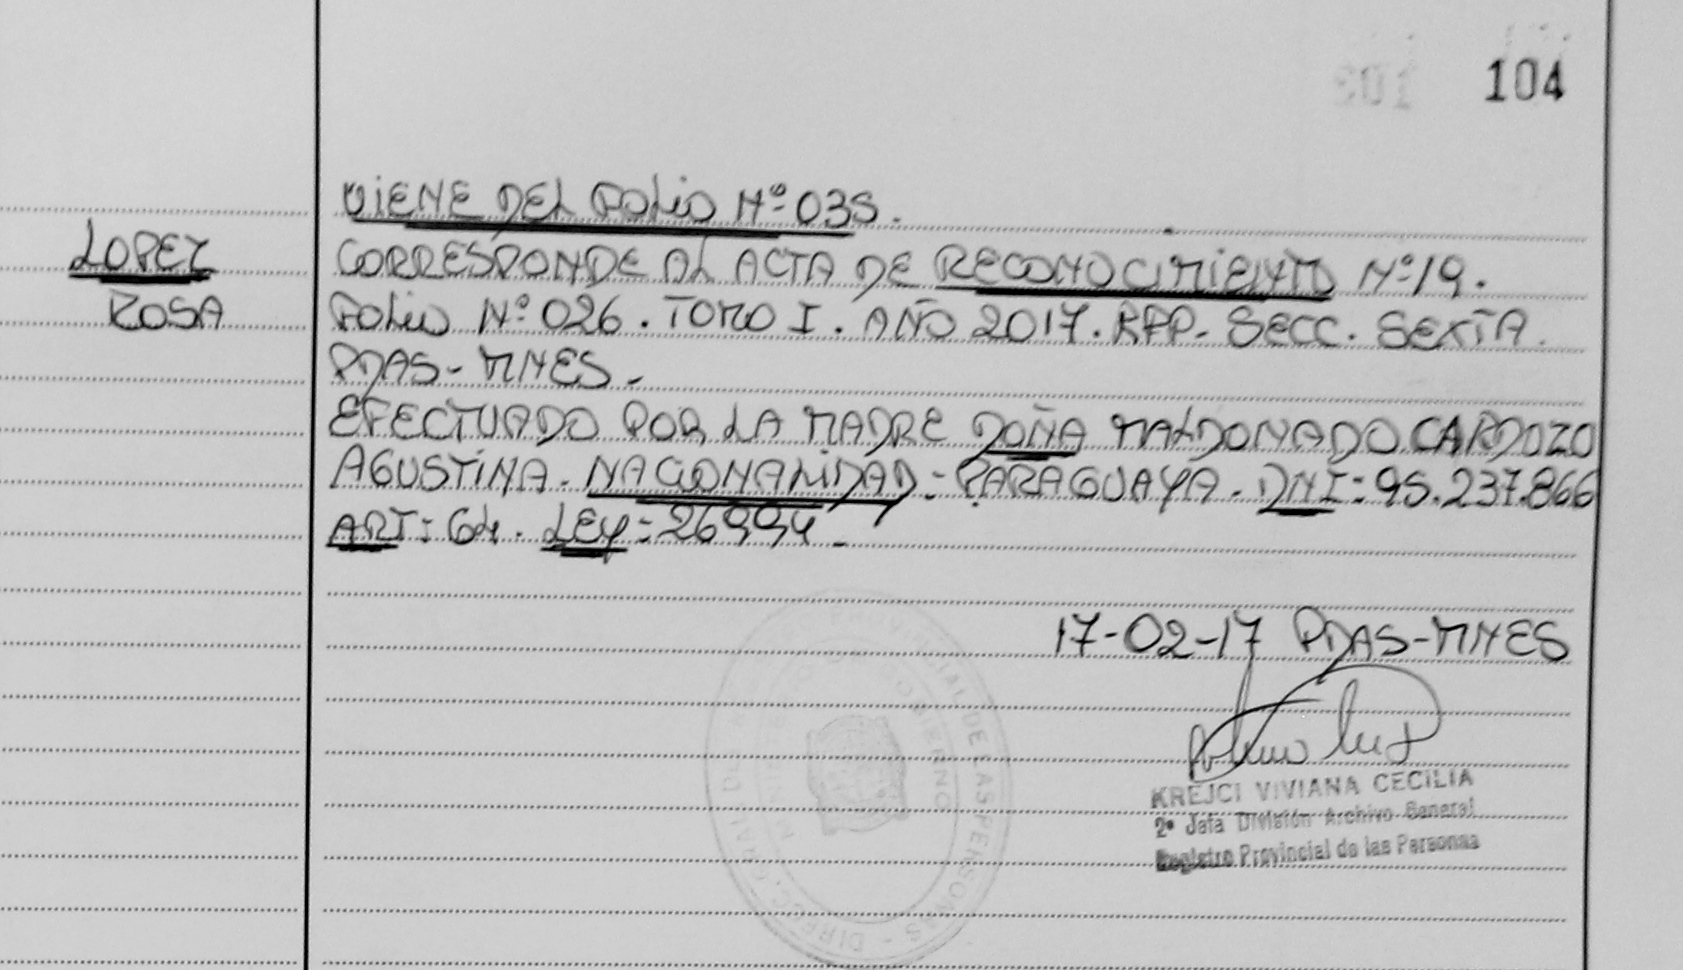 104
VIENE DEL FOLIO Nº 035.
LOPEZ
ROSA
CORRESPONDE AL ACTA DE RECONOCIMIENTO Nº 19.
FOLIO Nº 026. TOMO I. AÑO 2017. RPP- SECC. SEXTA.
PDAS- MNES.-
EFECTUADO POR LA MADRE DOÑA MALDONADO CARDOZO
AGUSTINA. NACIONALIDAD: PARAGUAYA. DNI: 95.237.866
ART: 64. LEY: 26994.-
17-02-17 PDAS-MNES
KREJCI VIVIANA CECILIA
2º Jefa División Archivo General
Registro Provincial de las Personas
PROVINCIAL DE LAS PERSONAS - DIRECC. GRAL DE
GOBIERNO